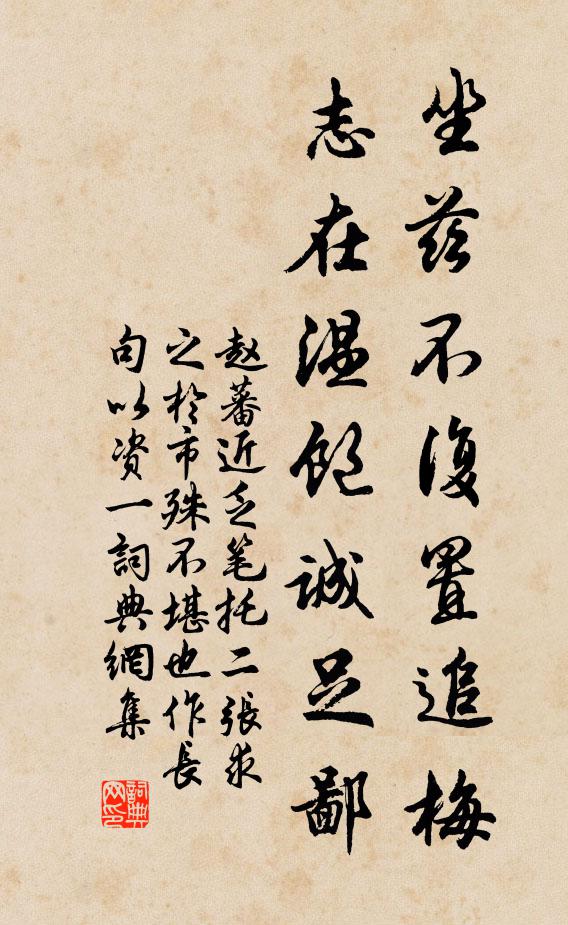 坐茲不復置追梅
志在温飽誠足鄙
赵蕃近乏笔托二張求
之於市殊不堪也作長
句以资一詞典網集
詞典
网印